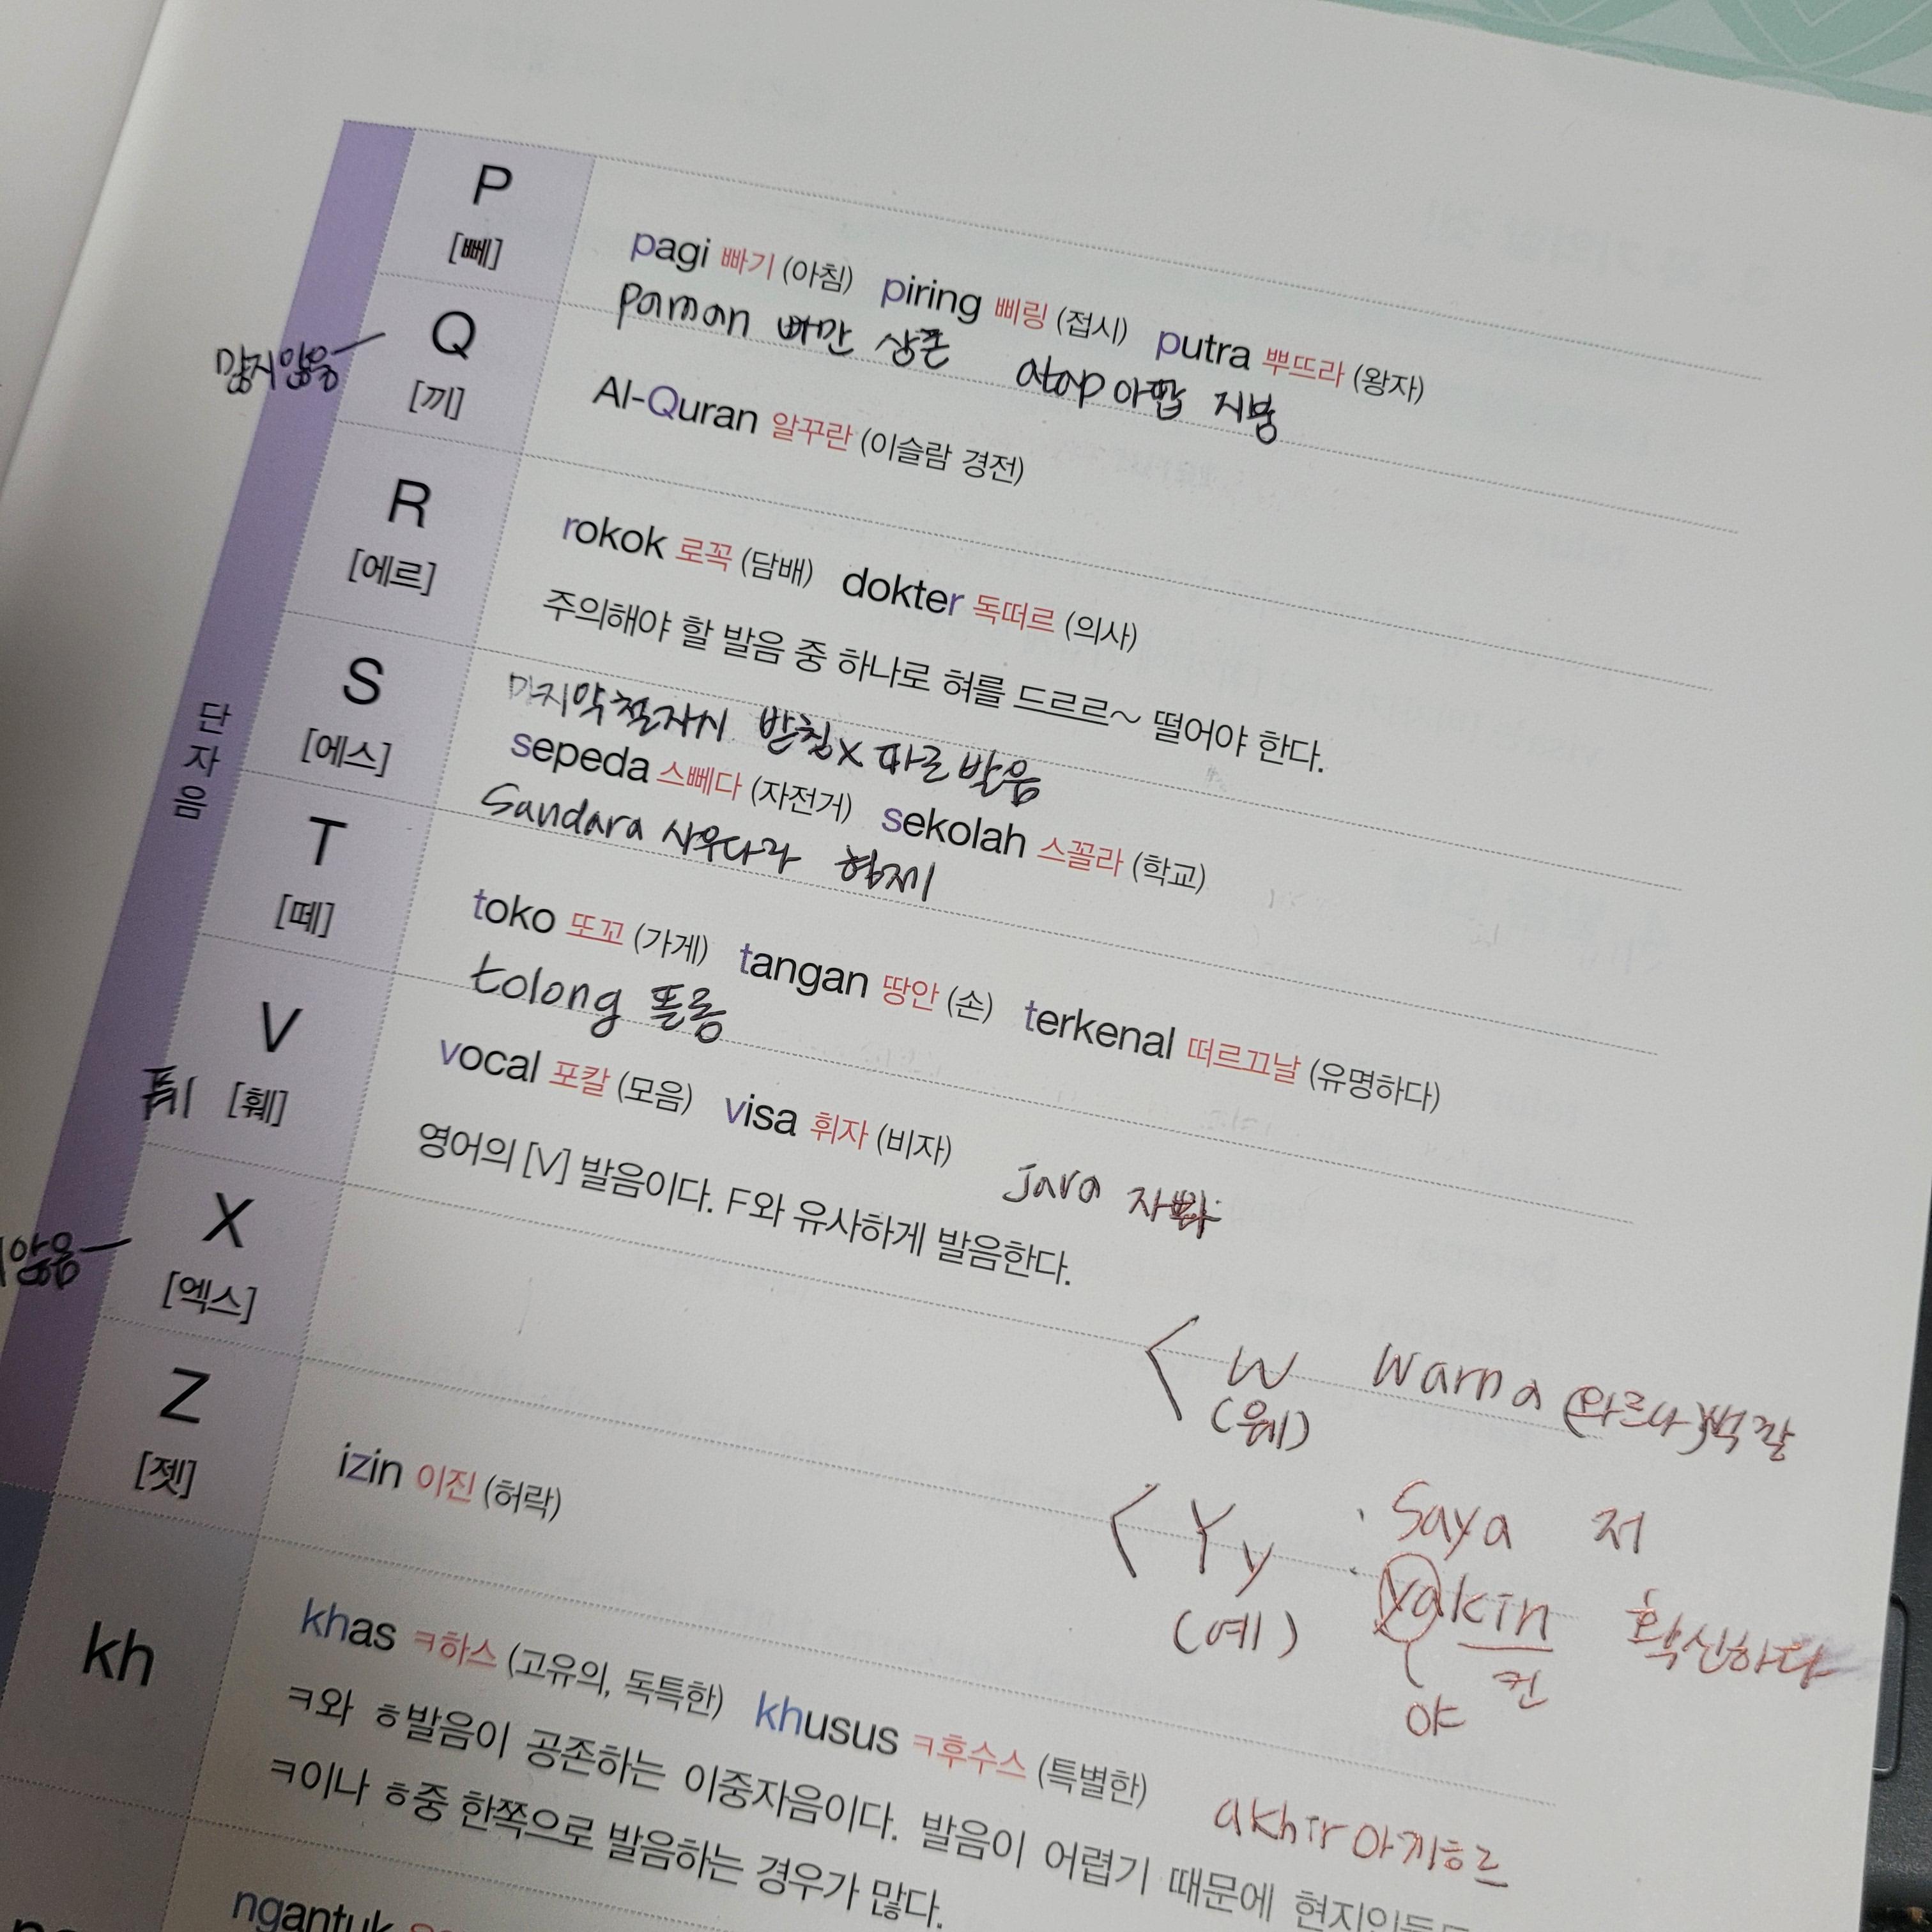 P
[뻬]
pagi 빠기 (아침) piring 삐링 (접시) putra 뿌뜨라 (왕자)
paman 빠만 삼촌 atap 아땁 지붕
많지않음
Q
[끼]
Al-Quran 알꾸란 (이슬람 경전)
R
[에르]
rokok 로꼭 (담배) dokter 독떠르 (의사)
주의해야 할 발음 중 하나로 혀를 드르르~ 떨어야 한다.
마지막철자시 받침X 따로 발음
단자음
S
[에스]
sepeda 스뻬다 (자전거) sekolah 스꼴라 (학교)
Sandara 사우다라 형제
T
[떼]
toko 또꼬 (가게) tangan 땅안 (손) terkenal 떠르끄날 (유명하다)
tolong 똘롱
V
[훼]
vocal 포칼 (모음) visa 휘자 (비자)
Java 자
영어의 [V] 발음이다. F와 유사하게 발음한다.
않음
X
[엑스]
< W Warna (와르나) 색깔
(웨)
Z
[젯]
izin 이진 (허락)
< Yy : Saya 저
(예) yakin 확신하다
야 킨
kh
khas ㅋ하스 (고유의, 독특한) khusus ㅋ후수스 (특별한)
akhir 아끼ㅎ르
ㅋ와 ㅎ발음이 공존하는 이중자음이다. 발음이 어렵기 때문에 현지인들도
ㅋ이나 ㅎ중 한쪽으로 발음하는 경우가 많다.
ngantuk